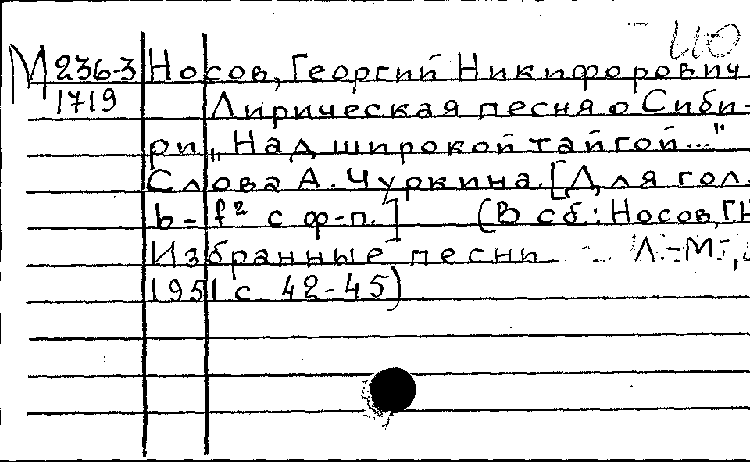 М 236-3 Носов, Георгий Никифорович
1719 Лирическая песня о Сиби-
ри „Над широкой тайгой..."
Слова А. Чуркина. [Для гол.
b-f² с ф-п.] (В сб.: Носов, Г.Н.
Избранные песни - Л.-М.,
1951 с. 42-45)